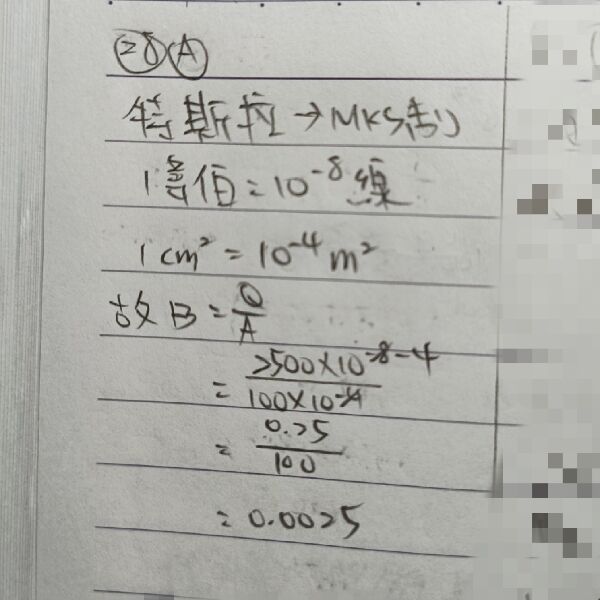 28 A
特斯拉→MKS制
1韋伯=10⁻⁸線
1cm²=10⁻⁴m²
故B=Q/A
=2500×10⁻⁸⁻⁴/100×10⁻⁴
=0.25/100
=0.0025